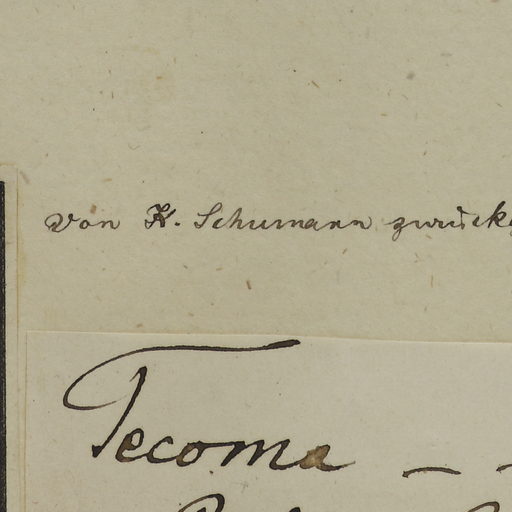 von K. Schumann zurück
Tecoma – –